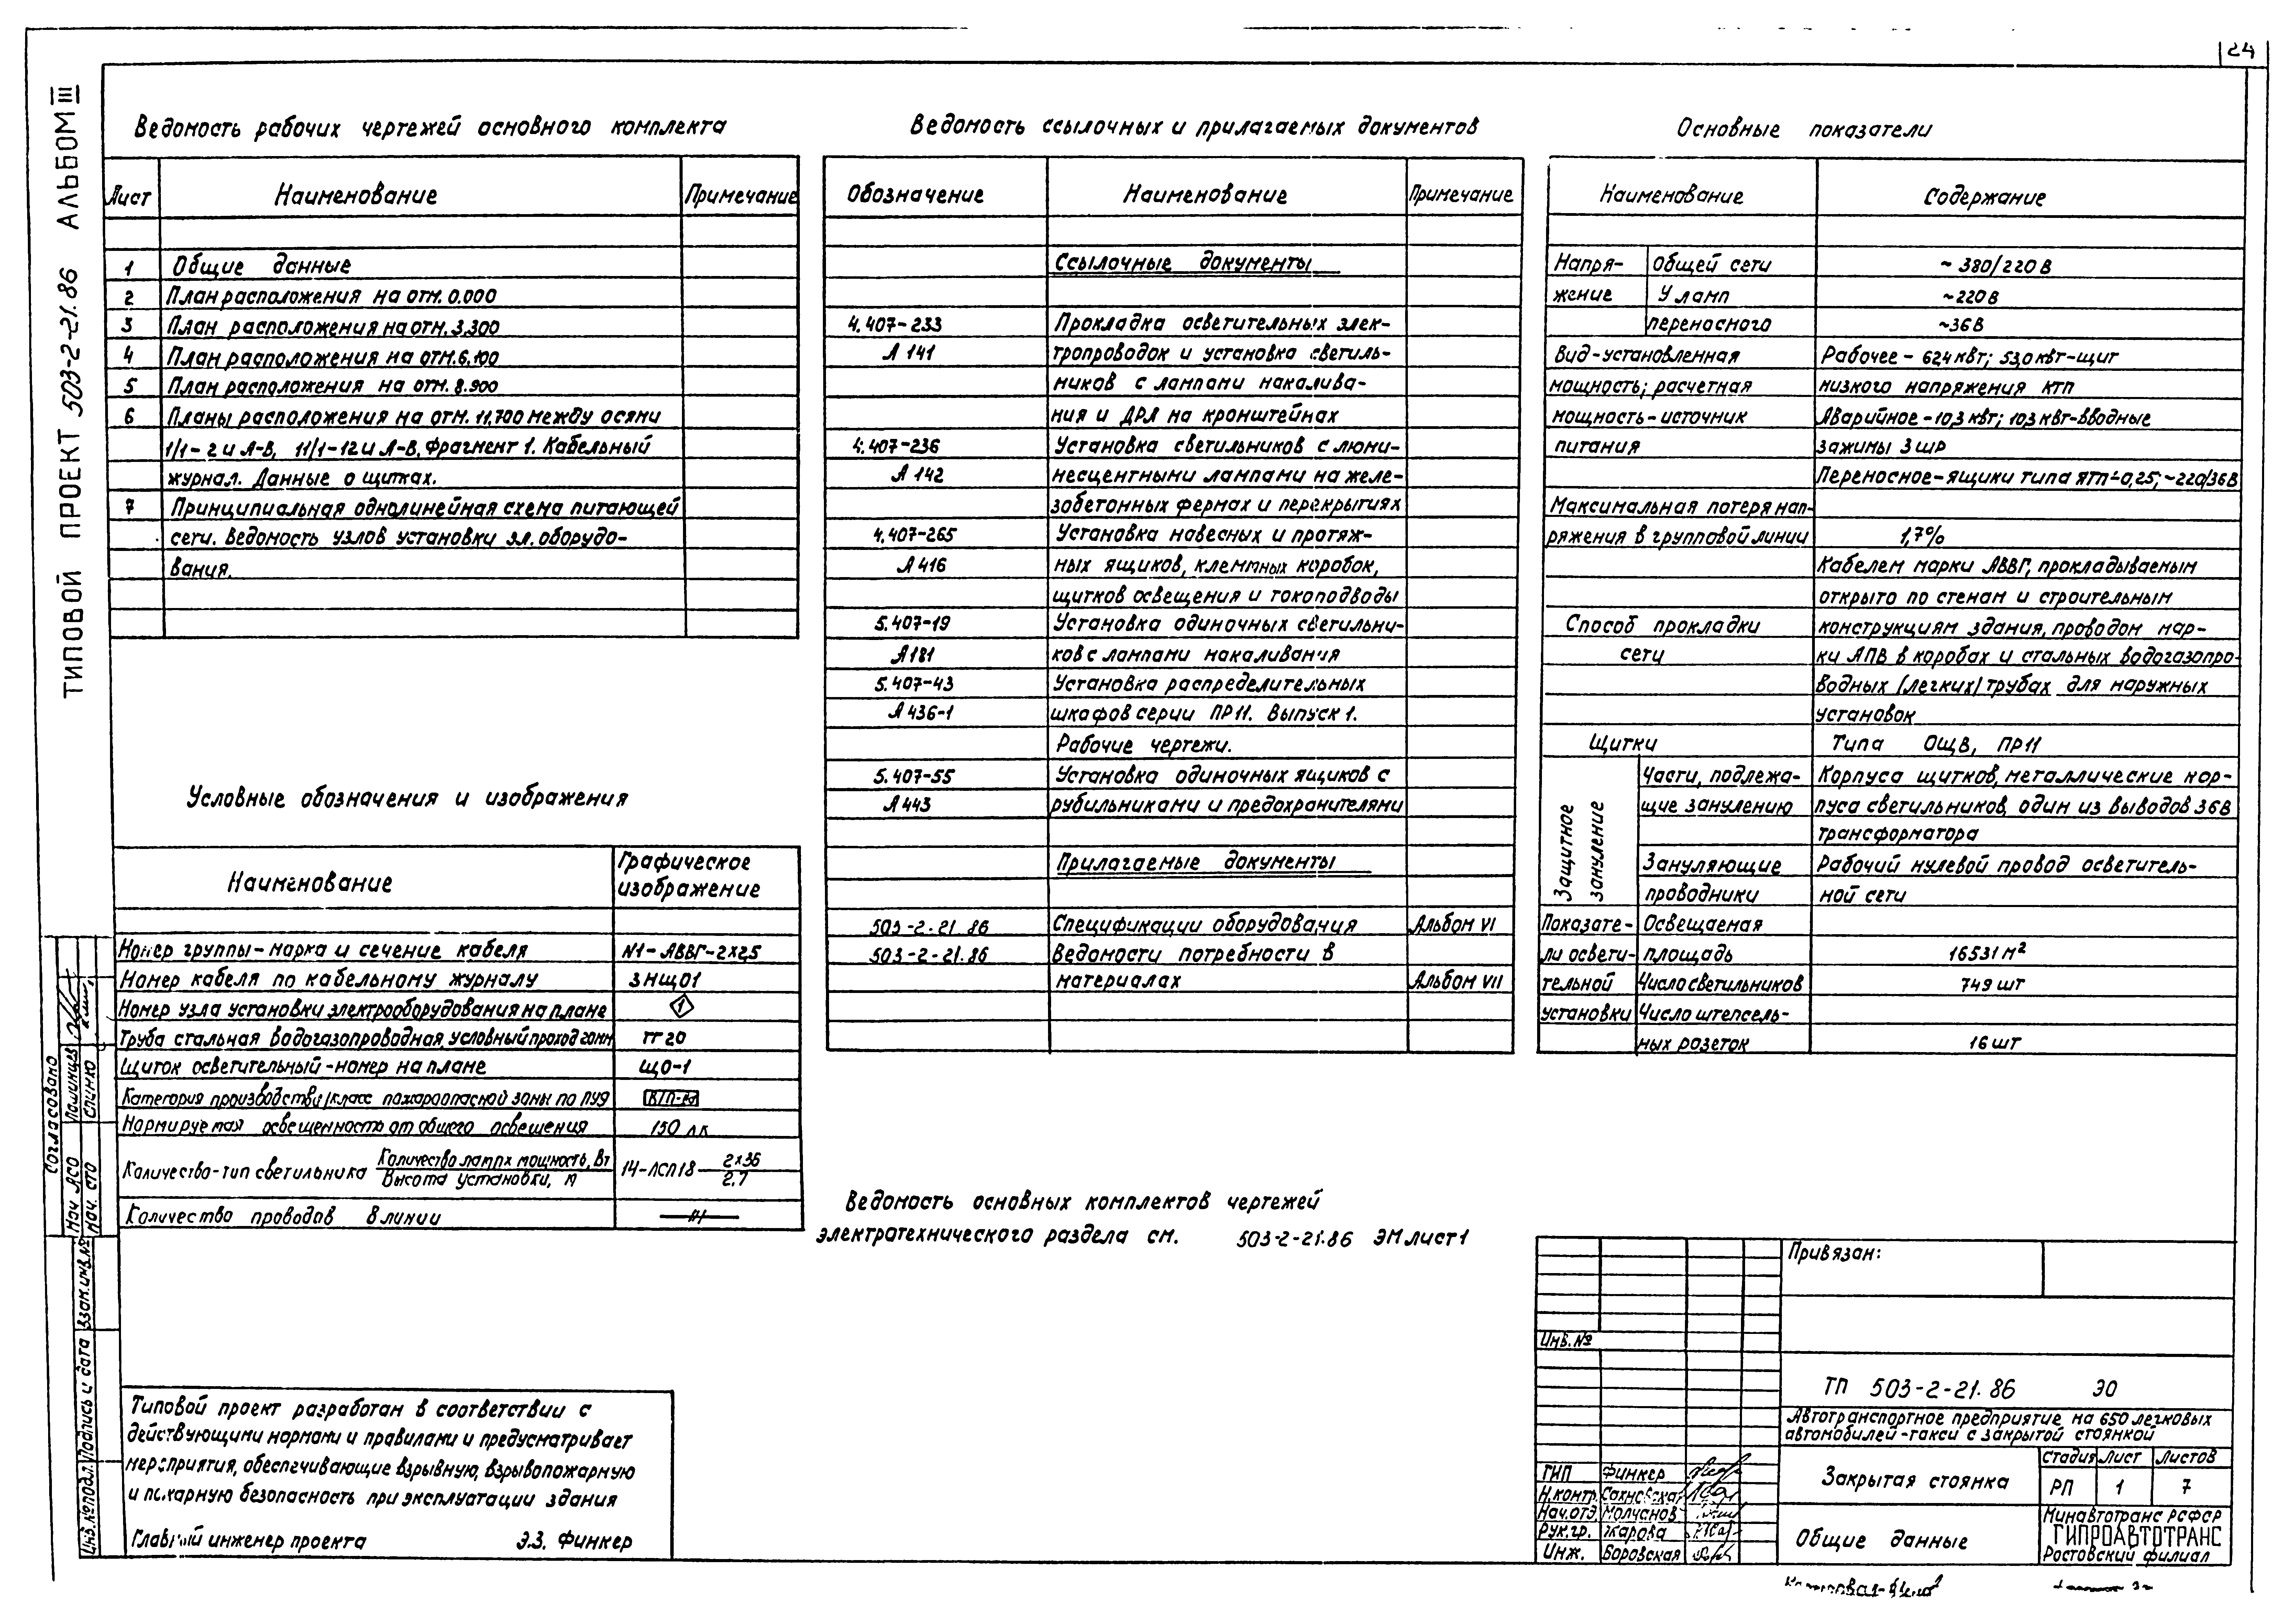 24
ТИПОВОЙ ПРОЕКТ 503-2-21.86 АЛЬБОМ III
Ведомость рабочих чертежей основного комплекта
Лист Наименование Примечание
1 Общие данные
2 План расположения на отм. 0.000
3 План расположения на отм. 3.300
4 План расположения на отм. 6.100
5 План расположения на отм. 8.900
6 Планы расположения на отм. 11.700 между осями
1/1-2 и А-В, 11/1-12 и А-В. Фрагмент 1. Кабельный
журнал. Данные о щитках.
7 Принципиальная однолинейная схема питающей
сети. Ведомость узлов установки эл. оборудо-
вания.
Условные обозначения и изображения
Наименование Графическое
изображение
Номер группы-марка и сечение кабеля N1-АВВГ-2×2,5
Номер кабеля по кабельному журналу 3НЩО1
Номер узла установки электрооборудования на плане 1
Труба стальная водогазопроводная, условный проход 20мм ТГ20
Щиток осветительный-номер на плане ЩО-1
Категория производства/класс пожароопасной зоны по ПУЭ
Нормируемая освещенность от общего освещения 150 лк
Количество-тип светильника Количество ламп х мощность, Вт 14-ЛСП18 2×36
Высота установки, м 2.7
Количество проводов в линии
Типовой проект разработан в соответствии с
действующими нормами и правилами и предусматривает
мероприятия, обеспечивающие взрывную, взрывопожарную
и пожарную безопасность при эксплуатации здания
Главный инженер проекта Э.З. Финкер
Ведомость ссылочных и прилагаемых документов
Обозначение Наименование Примечание
Ссылочные документы
4.407-233 Прокладка осветительных элек-
А 141 тропроводок и установка светиль-
ников с лампами накалива-
ния и ДРЛ на кронштейнах
4.407-236 Установка светильников с люми-
А 142 несцентными лампами на желе-
зобетонных фермах и перекрытиях
4.407-265 Установка навесных и протяж-
А 416 ных ящиков, клеммных коробок,
щитков освещения и токоподводы
5.407-19 Установка одиночных светильни-
А181 ков с лампами накаливания
5.407-43 Установка распределительных
А 436-1 шкафов серии ПР11. Выпуск 1.
Рабочие чертежи.
5.407-55 Установка одиночных ящиков с
А 443 рубильниками и предохранителями
Прилагаемые документы
503-2-21.86 Спецификации оборудования Альбом VI
503-2-21.86 Ведомости потребности в
материалах Альбом VII
Ведомость основных комплектов чертежей
электротехнического раздела см. 503-2-21.86 ЭМ лист 1
Основные показатели
Наименование Содержание
Напря- Общей сети ~380/220 В
жение У ламп ~220 В
переносного ~36 В
Вид-установленная Рабочее - 62,4 кВт; 53,0 кВт-щит
мощность; расчетная низкого напряжения КТП
мощность-источник Аварийное-10,3 кВт; 10,3 кВт-вводные
питания зажимы 3 ШР
Переносное-ящики типа ЯТП-0,25; ~220/36В
Максимальная потеря нап-
ряжения в групповой линии 1,7%
Кабелем марки АВВГ, прокладываемым
открыто по стенам и строительным
Способ прокладки конструкциям здания, проводом мар-
сети ки АПВ в коробах и стальных водогазопро-
водных (легких) трубах для наружных
установок
Щитки Типа ОЩВ, ПР11
Защитное зануление
Части, подлежа- Корпуса щитков, металлические кор-
щие занулению пуса светильников, один из выводов 36В
трансформатора
Зануляющие Рабочий нулевой провод осветитель-
проводники ной сети
Показате- Освещаемая
ли освети- площадь 16531 м²
тельной Число светильников 749 шт
установки Число штепсель-
ных розеток 16 шт
Согласовано
Нач АСО
Нач. СТО Спинко
Инв.№подл. Подпись и дата Взам.инв.№
Привязан:
Инв. №
ТП 503-2-21.86 ЭО
Автотранспортное предприятие на 650 легковых
автомобилей-такси с закрытой стоянкой
Закрытая стоянка
Стадия Лист Листов
РП 1 7
ГИП Финкер
Н.контр. Сахновская
Нач.отд. Молчанов
Рук.гр. Жарова
Инж. Боровская
Общие данные
Минавтотранс РСФСР
ГИПРОАВТОТРАНС
Ростовский филиал